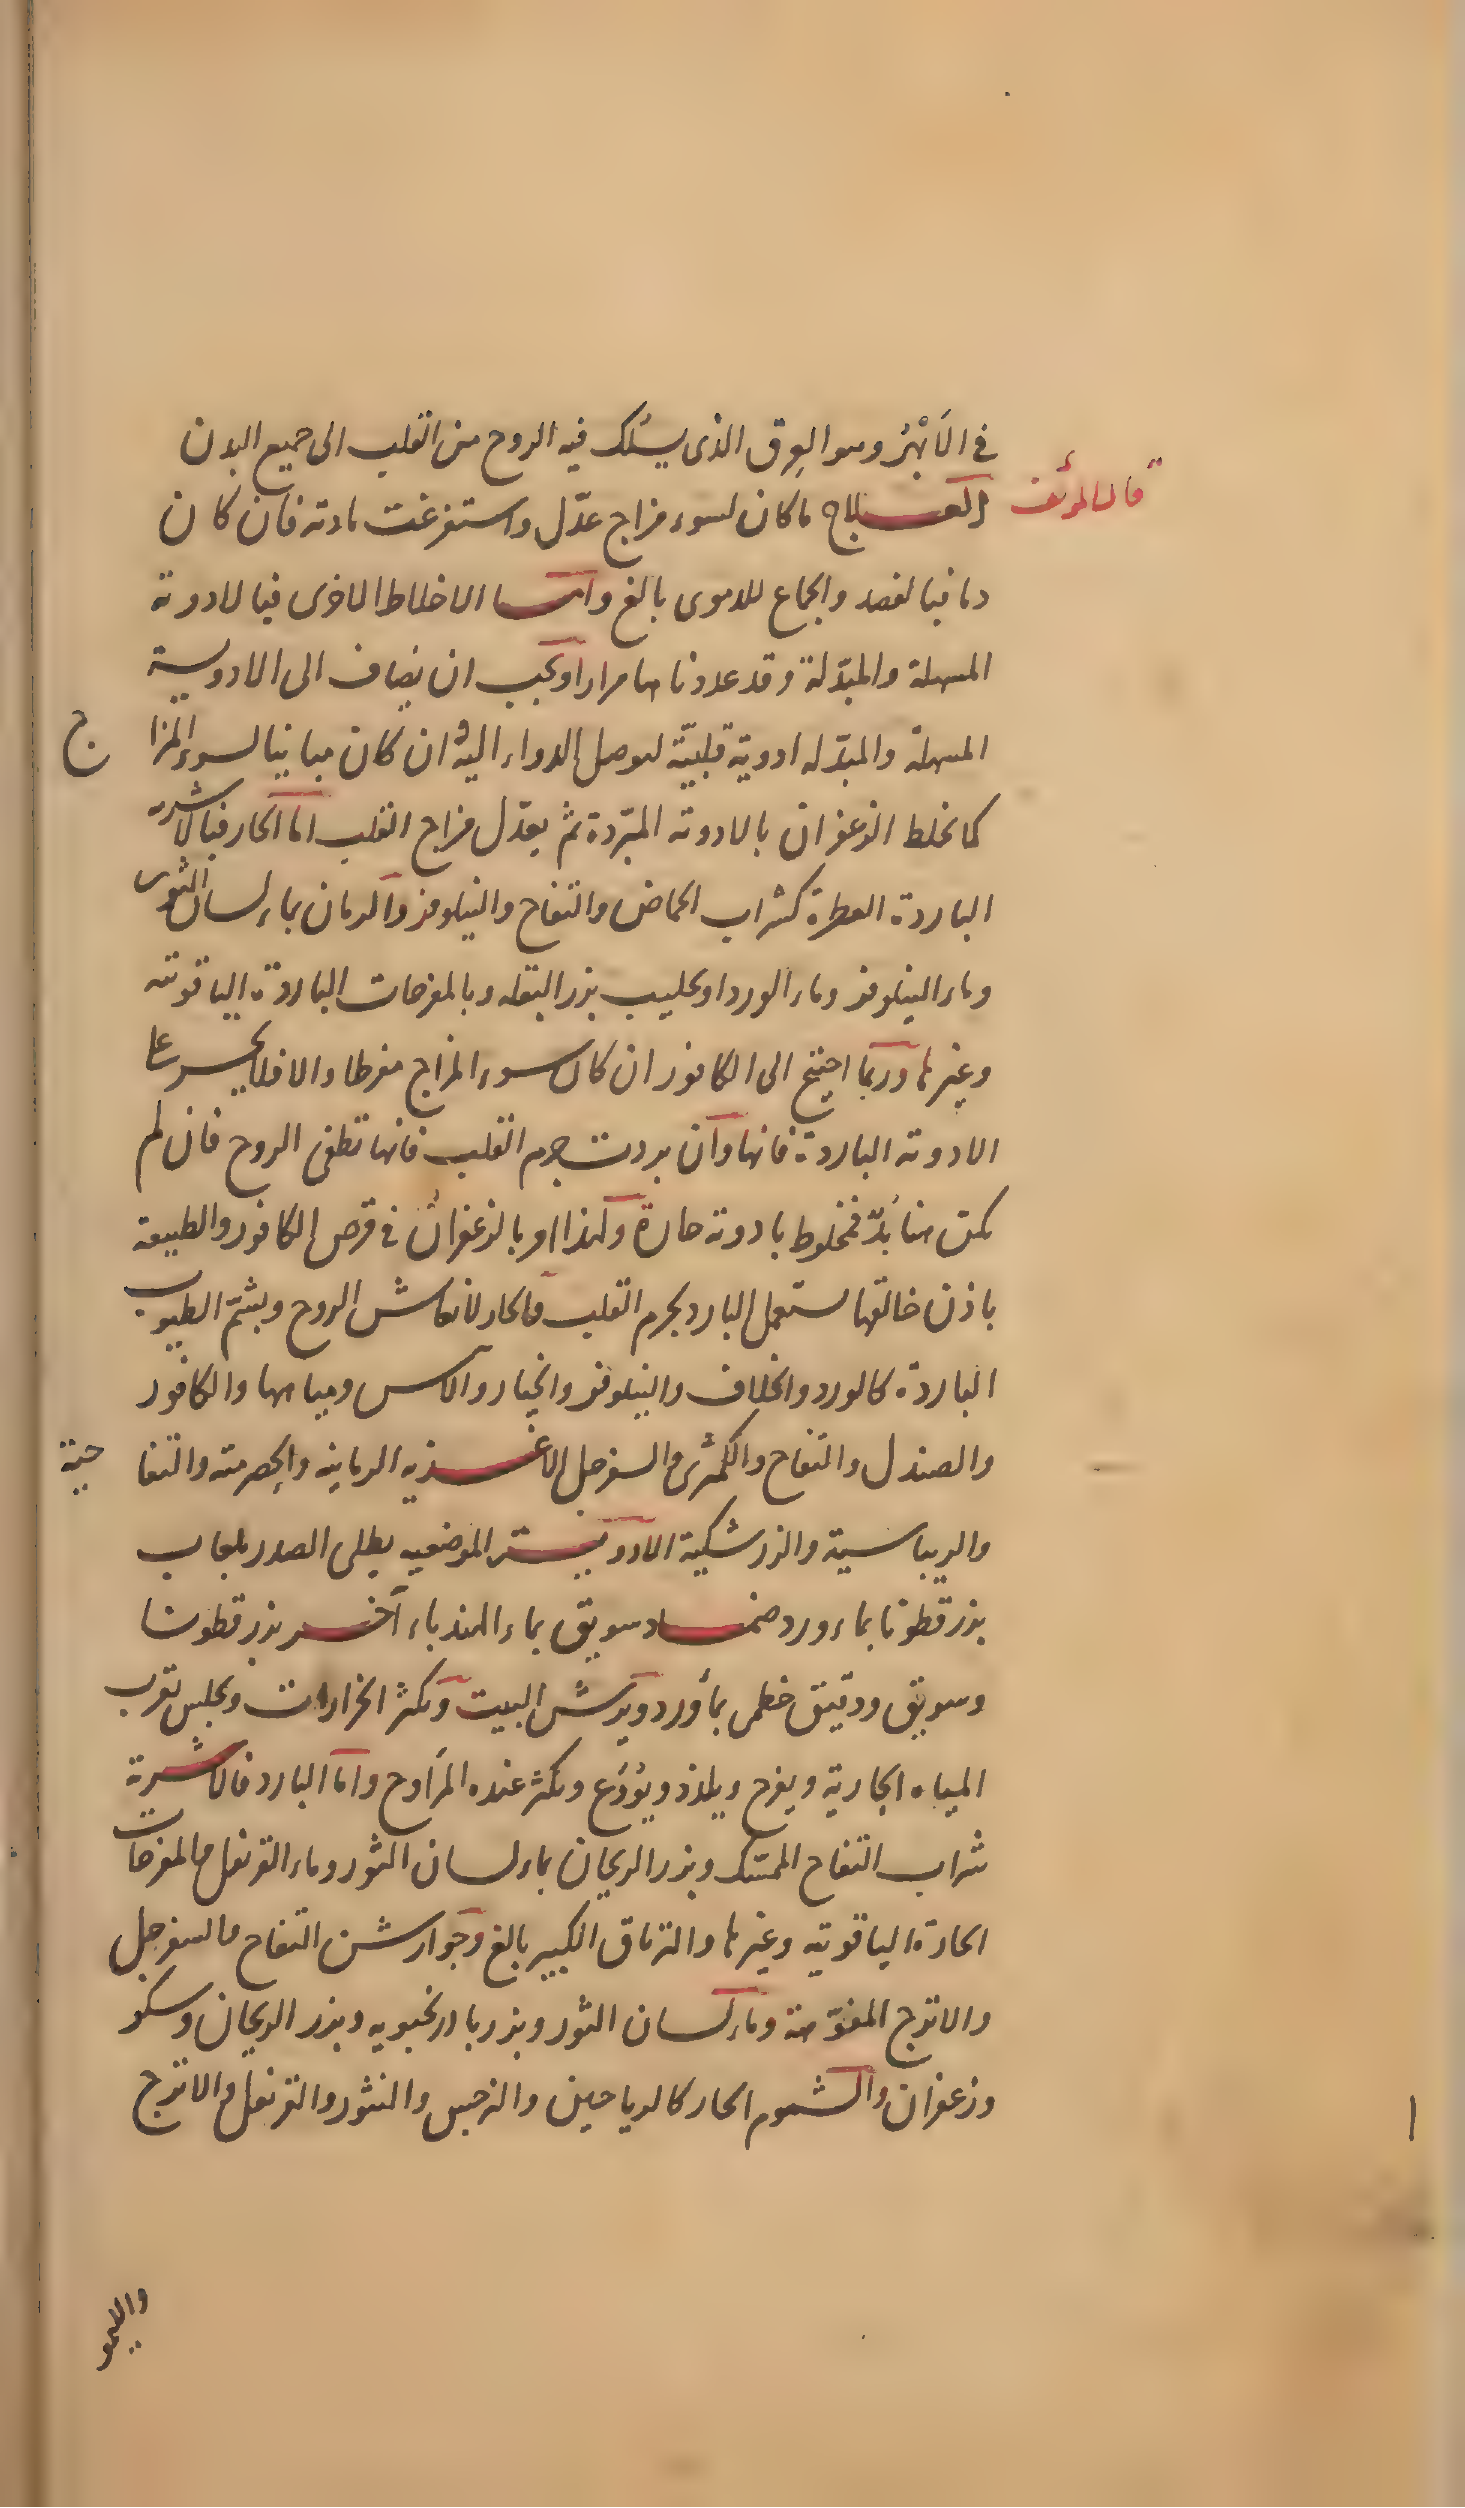 في الأَبْهَرُ وهو العِرق الذى يسلك فيه الروح من القلب الى جميع البدن
قال المؤلف
العلاج ما كان لسوء مزاج عدّل واستفرغت مادته فان كان
دما فبالفصد والجماع للدموى بالغ واما الاخلاط الاخرى فبالادوية
المسهلة والمبدّلة وقد عددناها مرارا ويجب ان يضاف الى الادوية
المسهلة والمبدّله ادوية قلبيّة لتوصل الدواء اليه وان كان مباينا لسوء المزاج
كما نخلط الزعفران بالادوية المبرّدة ثم يعدّل مزاج القلب اما الحار فبالاشربه
الباردة العطرة كشراب الحماض والتفاح والنيلوفر والرمان بماء لسان الثور
وماء النيلوفر وماء الورد او بحليب بزر البقله وبالمفرحات الباردة الياقوتيه
وغيرها وربما احتيج الى الكافور ان كان سوء المزاج مفرطا والا فلا يجسر على
الادوية الباردة فانها وان بردت جرم القلب فانها تطفى الروح فان لم
يكن منها بُدّ فمخلوط بادوية حارة ولهذا امر بالزعفران في قرص الكافور والطبيعة
باذن خالقها تستعمل البارد بجرم القلب والحار لانعاش الروح ويشمّ الطيوب
الباردة كالورد والخلاف والنيلوفر والخيار والآس ومياهها والكافور
والصندل والتفاح والكمثرى والسفرجل الاغذيه الرمانيه والحصرمية والتفاحية
والريباسية والزرشكية الادوية الموضعيه يطلى الصدر بلعاب
بزر قطونا بماء ورد ضماد سويق بماء الهندباء آخر بزر قطونا
وسويق ودقيق خطمى بماء ورد ويرش البيت ويكثر الخرارات ويجلس بقرب
المياه الجارية ويفرح ويلذذ ويُودَع ويكثر عنده المراوح واما البارد فالاشربة
شراب التفاح الممسّك وبزر الريحان بماء لسان الثور وماء القرنفل والمفرحات
الحارة الياقوتيه وغيرها والترياق الكبير بالغ وجوارشن التفاح والسفرجل
والاترج المفوّهة وماء لسان الثور وبزر بادرنجبويه وبزر الريحان وسكر
وزعفران والشموم الحار كالرياحين والنرجس والمنثور والقرنفل والاترج
والليمو